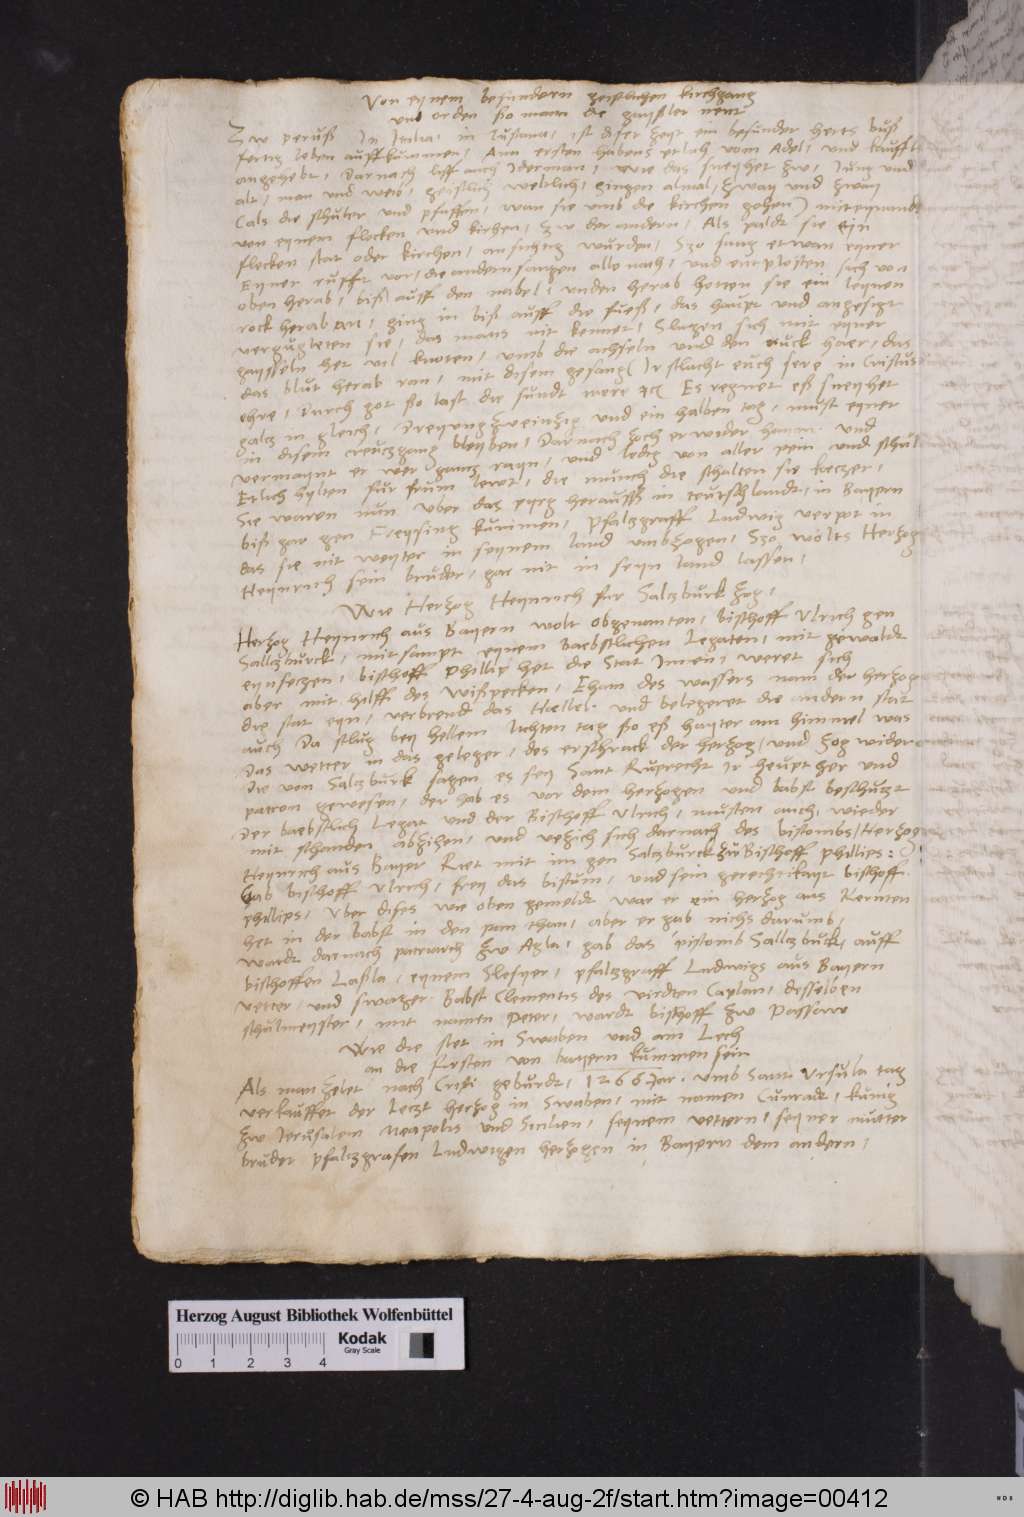 Von eynem besundern geystlichen kirchgang
und orden sso mann die gayssler nent
Zw peruss In Italia, in Tustana, ist diser zayt ein besunder herts buss
fertig leben auffkummen, Ann ersten habens etlich vom Adel, und kaufft
angehebt, Darnach liff auch Iderman, wie das sneyhet zw, Jung und
alt, man und weib, geistlich weltlich, gingen almal, zway und zway
(als die schuler und pfaffen, wan sie umb die kirchen gehen) miteynande
von eynem flecken und kirchen, zw der andern, Als paldt sie ein
flecken stat oder kirchen, ansichtig wurden, Szo sung etwan eyner
Eyner rufft vor, die andern sangen alle nach, und entplosten sich von
oben herab, biss auff den nabel, unden herab hetten sie ein leynen
rock herab an, ging in biss auff die fuess, das haupt und angesigt
vergugleten sie, das mans nit kennet, Slugen sich mit eyner
gaysseln het vil knoten, umb die achseln und den ruck hoer, das
das blut herab ran, mit disem gesang (Ir slacht euch sere in Cristus
ehre, Durch got sso last die sundt mere etc Es regnet ess sneyhet
galt in gleich, Dreyundzweinzig und ein halben tag, must eyner
in disem creutzgang bleyben, Darnach zoch er wider haim, und
vermaynt er wer gantz rayn, und ledig von aller pein und schul
Etlich hylten fur frum lewt, die munch die schalten sie keczer,
Sie waren nun uber das pyrg herauss in teutschlandt, in Bayern
biss gar gen Freysing kummen, Pfaltzgraff Ludwig verpot in
das sie nit weyter in seynem land umbzogen, Szo wolts Herzog
Heynrich sein bruder, gar nit in seyn land lassen,
Wie Herzog Heynrich fur Saltzburk zog,
Herzog Heynrich aus Bayern wolt obgenanten, bischoff Ulrich gen
Salltzburck, mitsampt eynem Baebstlichen Legaten, mit gewaldt
eynseczen, bischoff Phillip het die Stat Innen, weret sich
aber mit hilff des Wisspecken, Eham des wassers nam der herzog
die stat eyn, verbrend das Hallel, und belegeret die andern stat
auch Da slug bey hellem lichten tag sso ess hayter am himmel was
Das wetter in das geleger, des erschrack der herzog, und zog wider
Die von Saltzburk sagen es sey Sant Ruprecht ir heupther und
patron gewesen, der hab es vor dem herzogen und babst beschutzt
Der baebstlich Legat und der Bisthoff Ulrich, musten auch wieder
mit schanden abzihen, und verzich sich darnach des bistombs, Herzog
Heynrich aus Bayer Ret mit im gen Saltzburck zw Bisthoff phillips:
Gab bischoff Ulrich, frey das bistum, und sein gerechtikayt bischoff
phillips, Uber dises wie oben gemeldt war er ein herzog aus Kernten
het in der babst in den pan than, aber er gab nichs darumb,
wardt darnach patriarch zw Agla, gab das pistomb Salltzbuck auff
bisthoffen Lassla, eynem Slesyer, pfaltzgraff Ludwigs aus Bayern
vetter, und swager. Babst Clementis des virdten Caplan, desselben
schulmeyster, mit namen Peter, wardt bisthoff zw Passaw
Wie die stet in Swaben und am Lech
an die fursten von bayern kummen sein
Als man zelet nach Cristi geburdt, 1266 Jar. umb Sant Ursula tag
verkauffet der letzt herzog in Swaben, mit namen Cunradt, kunig
zw Jerusalem Neapolis und Sicilien, seynem vettern, seyner muter
bruder pfaltzgrafen Ludwigen herzogen in Bayern dem andern,
Herzog August Bibliothek Wolfenbüttel
Kodak
Gray Scale
0 1 2 3 4
© HAB http://diglib.hab.de/mss/27-4-aug-2f/start.htm?image=00412